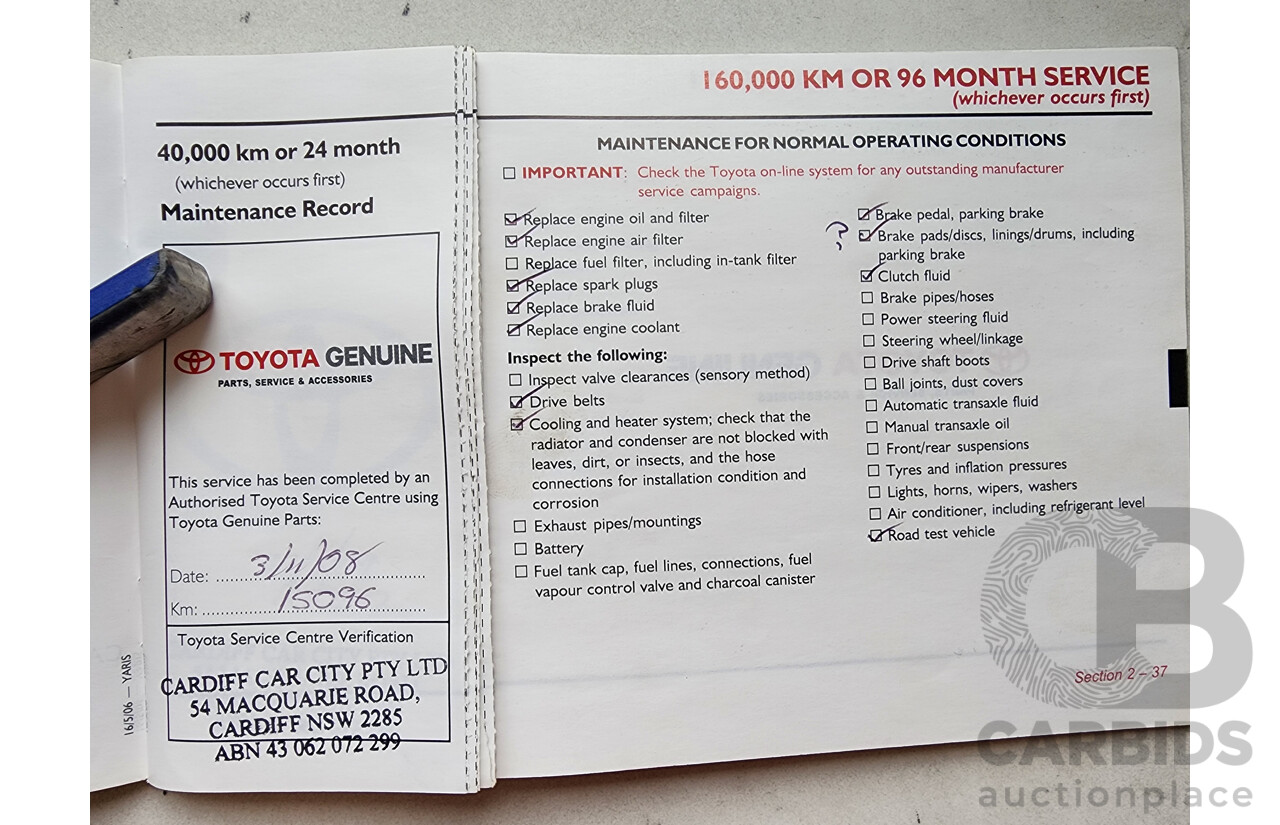 40,000 km or 24 month
(whichever occurs first)
Maintenance Record
TOYOTA GENUINE
PARTS, SERVICE & ACCESSORIES
This service has been completed by an
Authorised Toyota Service Centre using
Toyota Genuine Parts:
Date: 3/11/08
Km: 15096
Toyota Service Centre Verification
CARDIFF CAR CITY PTY LTD
54 MACQUARIE ROAD,
CARDIFF NSW 2285
ABN 43 062 072 299
16/5/06 — YARIS
160,000 KM OR 96 MONTH SERVICE
(whichever occurs first)
MAINTENANCE FOR NORMAL OPERATING CONDITIONS
IMPORTANT: Check the Toyota on-line system for any outstanding manufacturer
service campaigns.
Replace engine oil and filter
Replace engine air filter
Replace fuel filter, including in-tank filter
Replace spark plugs
Replace brake fluid
Replace engine coolant
Inspect the following:
Inspect valve clearances (sensory method)
Drive belts
Cooling and heater system; check that the
radiator and condenser are not blocked with
leaves, dirt, or insects, and the hose
connections for installation condition and
corrosion
Exhaust pipes/mountings
Battery
Fuel tank cap, fuel lines, connections, fuel
vapour control valve and charcoal canister
Brake pedal, parking brake
? Brake pads/discs, linings/drums, including
parking brake
Clutch fluid
Brake pipes/hoses
Power steering fluid
Steering wheel/linkage
Drive shaft boots
Ball joints, dust covers
Automatic transaxle fluid
Manual transaxle oil
Front/rear suspensions
Tyres and inflation pressures
Lights, horns, wipers, washers
Air conditioner, including refrigerant level
Road test vehicle
Section 2 – 37
CB
CARBIDS
auctionplace